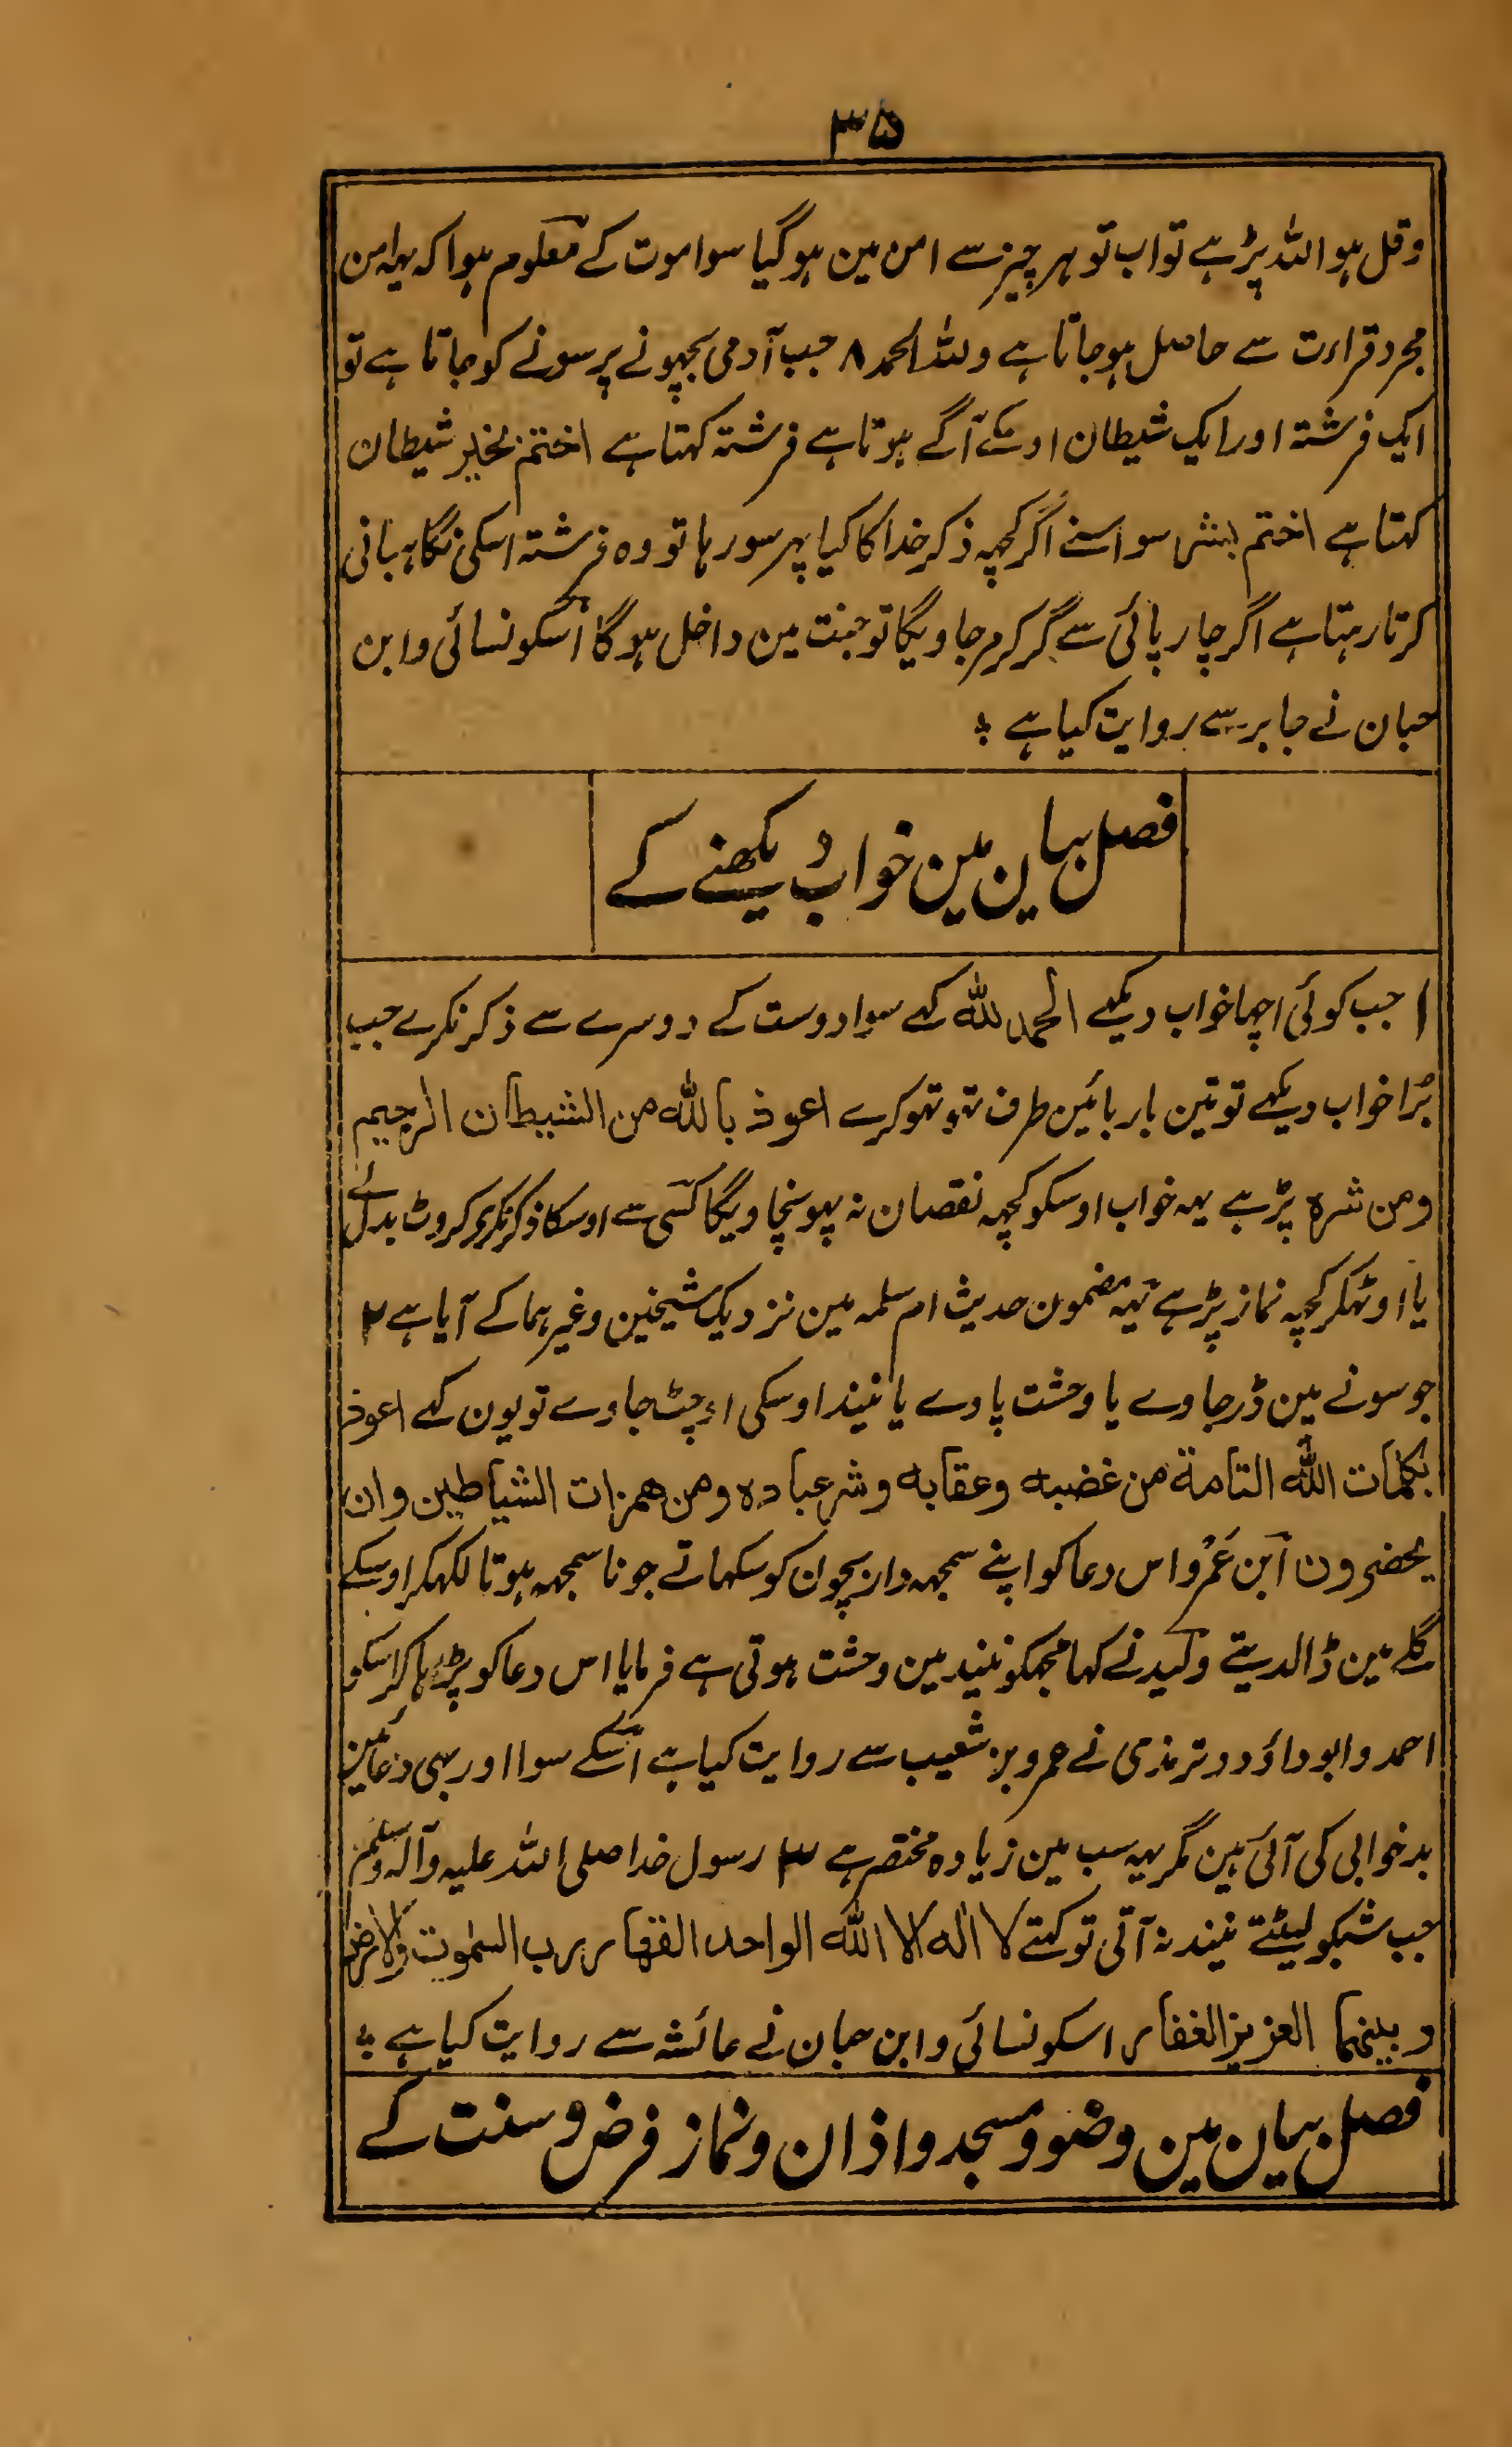 ۳۵
وقل ہو اللہ پڑہے تو اب تو ہر چیز سے امن مین ہو گیا سوا موت کے معلوم ہوا کہ یہ امن
مجرد قراءت سے حاصل ہو جاتا ہے وللہ الحمد ۸ جب آدمی بچھونے پر سونے کو جاتا ہے تو
ایک فرشتہ اور ایک شیطان اوسکے آگے ہوتا ہے فرشتہ کہتا ہے اختم بخیر شیطان
کہتا ہے اختم بشر سو اسنے اگر کچہہ ذکر خدا کا کیا پہر سو رہا تو وہ فرشتہ اسکی نگاہبانی
کرتا رہتا ہے اگر چارپائی سے گر کر مر جاویگا تو جنت مین داخل ہوگا اسکو نسائی وابن
حبان نے جابر سے روایت کیا ہے ؞
فصل بیان مین خواب دیکھنے کے
۱ جب کوئی اچھا خواب دیکہے الحمد للہ کہے سوا دوست کے دوسرے سے ذکر نکرے جب
بُرا خواب دیکہے تو تین بار بائین طرف تہو تہو کرے اعوذ باللہ من الشیطان الرجیم
ومن شرہ پڑہے یہہ خواب اوسکو کچہہ نقصان نہ پہونچاویگا کسی سے اوسکا ذکر نکرے کروٹ بدلے
یا اوٹہکر کچہہ نماز پڑہے یہہ مضمون حدیث ام سلمہ مین نزدیک شیخین وغیرہما کے آیا ہے ۲
جو سونے مین ڈر جاوے یا وحشت پاوے یا نیند اوسکی اوچٹ جاوے تو یون کہے اعوذ
بکلمات اللہ التامۃ من غضبہ وعقابہ وشر عبادہ ومن ھمزات الشیاطین وان
یحضرون ابن عمرو اس دعا کو اپنے سمجہہ دار بچوان کو سکہاتے جو ناسمجہہ ہوتا لکہکر اوسکے
گلے مین ڈالدیتے ولید نے کہا مجہکو نیند مین وحشت ہوتی ہے فرمایا اس دعا کو پڑہا کر اسکو
احمد وابو داؤد وترمذی نے عمرو بن شعیب سے روایت کیا ہے اسکے سوا اور بہی دعائین
بدخوابی کی آئی ہین مگر یہہ سب مین زیادہ مختصر ہے ۳ رسول خدا صلی اللہ علیہ وآلہ وسلم
جب شبکو لیٹتے نیند نہ آتی تو کہتے لا الہ الا اللہ الواحد القھار رب السموت والارض
وبینھما العزیز الغفار اسکو نسائی وابن حبان نے عائشہ سے روایت کیا ہے ؞
فصل بیان مین وضو ومسجد واذان ونماز فرض وسنت کے